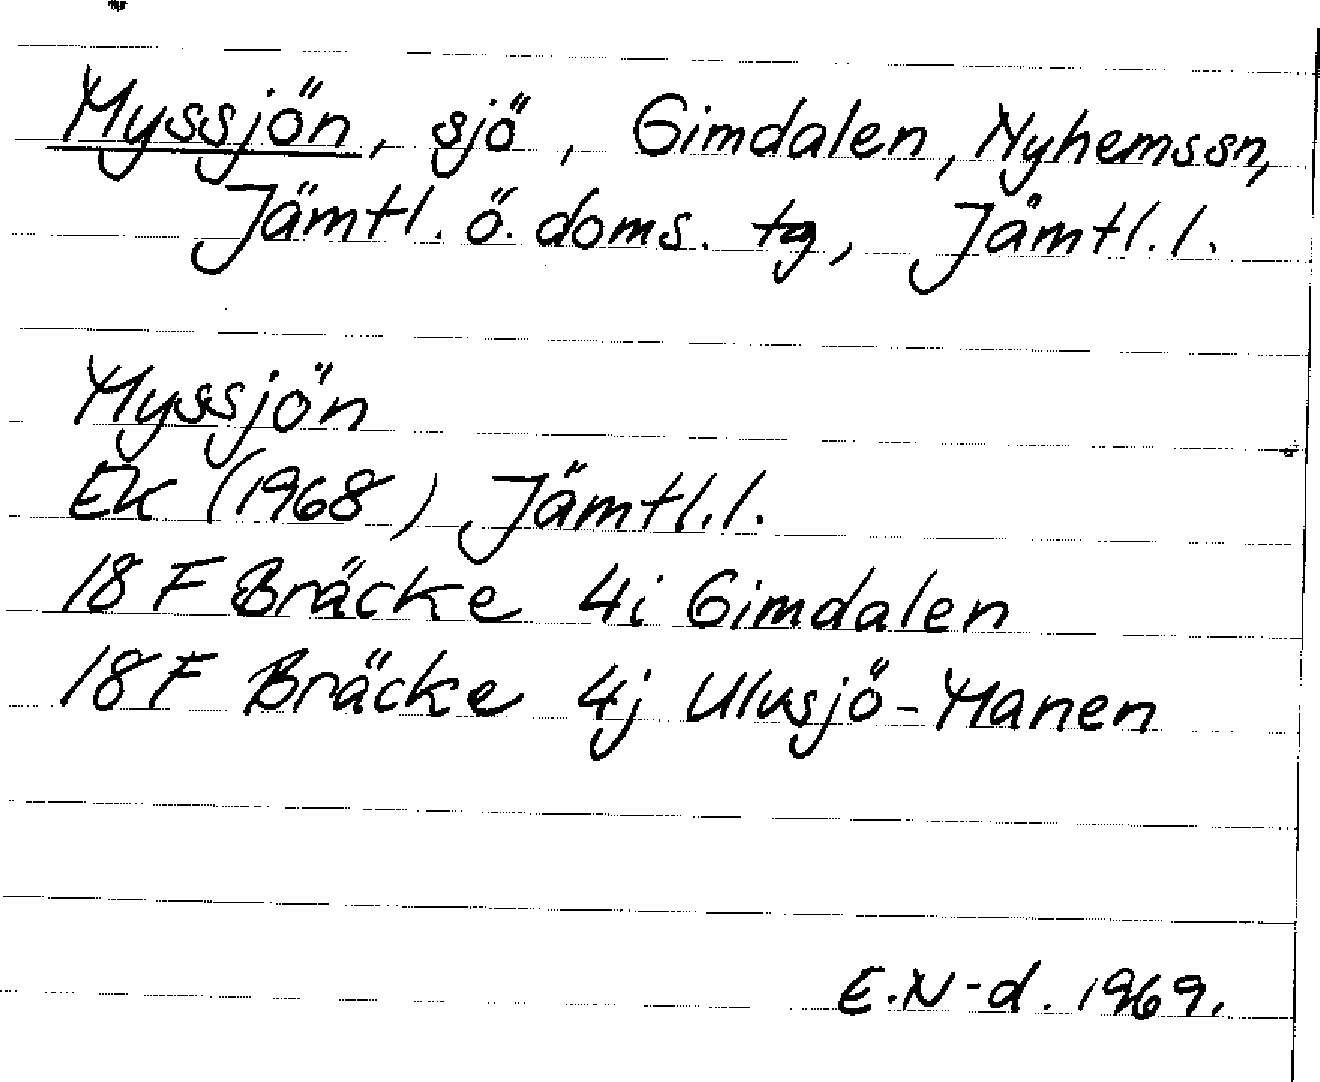 Myssjön, sjö, Gimdalen, Nyhemssn,
Jämtl. ö. doms. tg, Jämtl. l.
Myssjön
EK (1968) Jämtl. l.
18 F Bräcke 4i Gimdalen
18 F Bräcke 4j Ulvsjö-Manen
E.N-d. 1969.